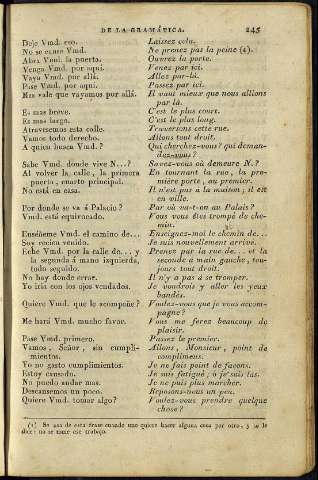 DE LA GRAMÁTICA. 245
Deje Vmd. eso. Laissez cela.
No se canse Vmd. Ne prenez pas la peine (1).
Abra Vmd. la puerta. Ouvrez la porte.
Venga Vmd. por aquí. Venez par ici.
Vaya Vmd. por allá. Allez par-là.
Pase Vmd. por aquí. Passez par ici.
Mas vale que vayamos por allá. Il vaut mieux que nous allions
par là.
Es mas breve. C'est le plus court.
Es mas largo. C'est le plus long.
Atravesemos esta calle. Traversons cette rue.
Vamos todo derecho. Allons tout droit.
A quien busca Vmd.? Qui cherchez-vous? qui deman-
dez-vous?
Sabe Vmd. donde vive N...? Savez-vous où demeure N.?
Al volver la calle, la primera En tournant la rue, la pre-
puerta, cuarto principal. mière porte, au premier.
No está en casa. Il n'est pas à la maison; il est
en ville.
Por donde se va á Palacio? Par où va-t-on au Palais?
Vmd. está equivocado. Vous vous êtes trompé de che-
min.
Enséñeme Vmd. el camino de... Enseignez-moi le chemin de...
Soy recien venido. Je suis nouvellement arrivé.
Eche Vmd. por la calle de... y Prenez par la rue de... et la
la segunda á mano izquierda, seconde à main gauche, tou-
todo seguido. jours tout droit.
No hay donde errar. Il n'y a pas à se tromper.
Yo iria con los ojos vendados. Je voudrois y aller les yeux
bandés.
Quiere Vmd. que le acompañe? Voulez-vous que je vous accom-
pagne?
Me hará Vmd. mucho favor. Vous me ferez beaucoup de
plaisir.
Pase Vmd. primero. Passez le premier.
Vamos, Señor, sin cumpli- Allons, Monsieur, point de
mientos. complimens.
Yo no gasto cumplimientos. Je ne fais point de façons.
Estoy cansado. Je suis fatigué, ó je suis las.
No puedo andar mas. Je ne puis plus marcher.
Descansemos un poco. Reposons-nous un peu.
Quiere Vmd. tomar algo? Voulez-vous prendre quelque
chose?
(1) Se usa de esta frase cuando uno quiere hacer alguna cosa por otro, y se le
dice: no se tome ese trabajo.